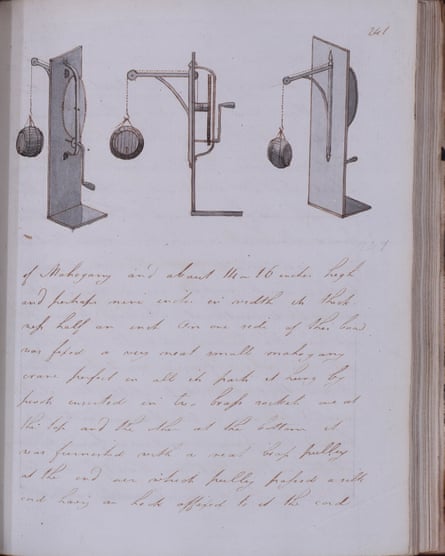 241
of Mahogany and about 14 or 16 inches high
and perhaps nine inch in width its thick
ness half an inch on one side of this board
was fixed a very neat small mahogany
crane perfect in all its parts it hung by
pivots inserted in two brass sockets one at
the top and the other at the bottom it
was furnished with a neat brass pulley
at the end over which pulley passed a silk
cord having an hook affixed to it the cord